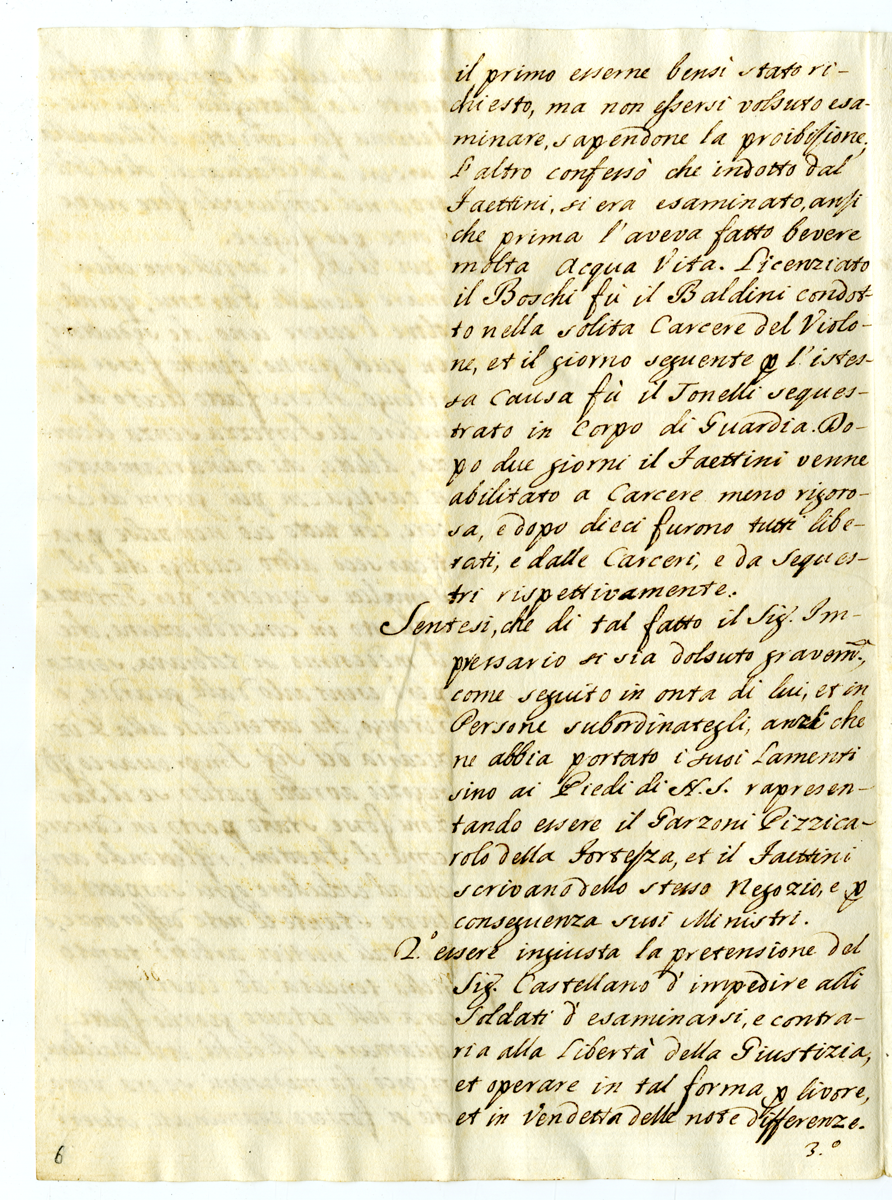 il primo esserne bensì stato ri-
chiesto, ma non essersi volsuto esa-
minare, sapendone la proibissione,
l'altro confessò che indotto dal
Faettini, si era esaminato, ansi
che prima l'aveva fatto bevere
molta Acqua Vita. Licenziato
il Boschi fù il Baldini condot-
to nella solita Carcere del Violo-
ne, et il giorno seguente p l'istes-
sa Causa fù il Tonelli seques-
trato in Corpo di Guardia. Do-
po due giorni il Faettini venne
abilitato a Carcere meno rigoro-
sa, e dopo dieci furono tutti libe-
rati, e dalle Carceri, e da Seques-
tri rispettivamente.
Sentesi, che di tal fatto il Sig. Im-
pressario si sia dolsuto gravem.e,
come seguito in onta di lui, et in
Persone subordinategli, anzi che
ne abbia portato i suoi Lamenti
sino ai Piedi di N.S. rapresen-
tando essere il Garzoni Pizzica-
rolo della Fortessa, et il Faettini
scrivano dello stesso Negozio, e p
conseguenza suoi Ministri.
2.° essere ingiusta la pretensione del
Sig. Castellano d'impedire alli
Soldati d'esaminarsi, e contra-
ria alla Libertà della Giustizia,
et operare in tal forma p livore,
et in Vendetta delle note differenze.
3.°
6